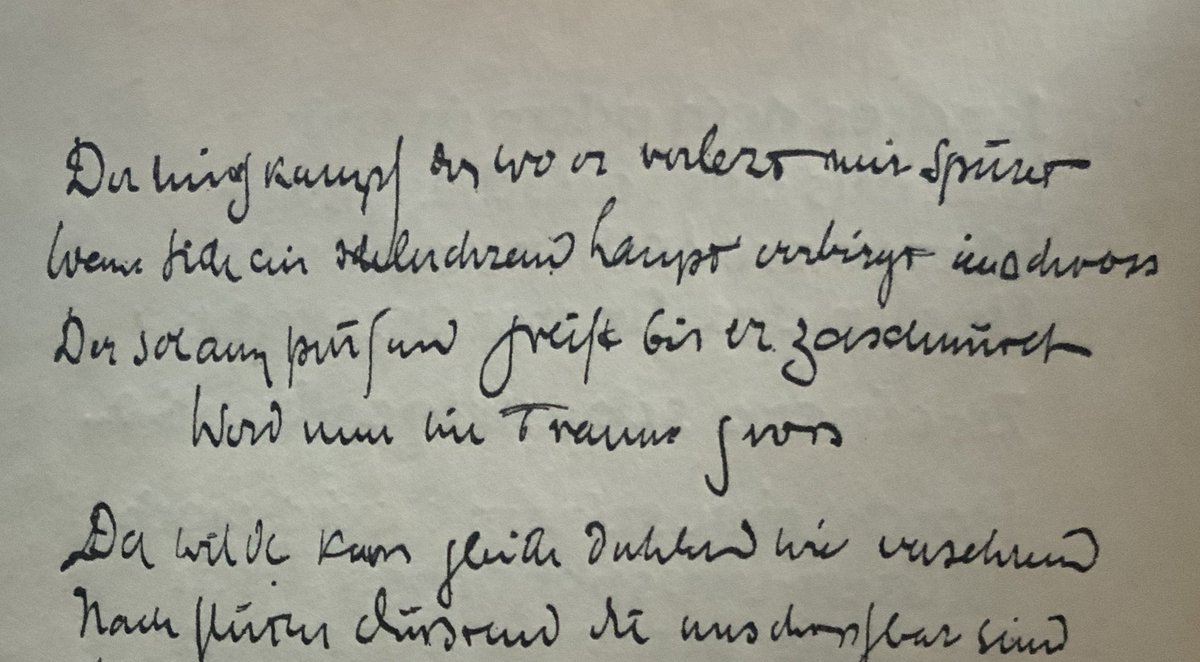 Der ringkampf der wo er verlezt nur spüret
Wenn sich ein schluchzend haupt verbirgt im schooss
Der solang prüfend greift bis er zerschnüret
Ward nun im Traume gross
Der wilde kuss gleich duldend wie versehrend
Nach fluten dürstend die unschöpfbar sind